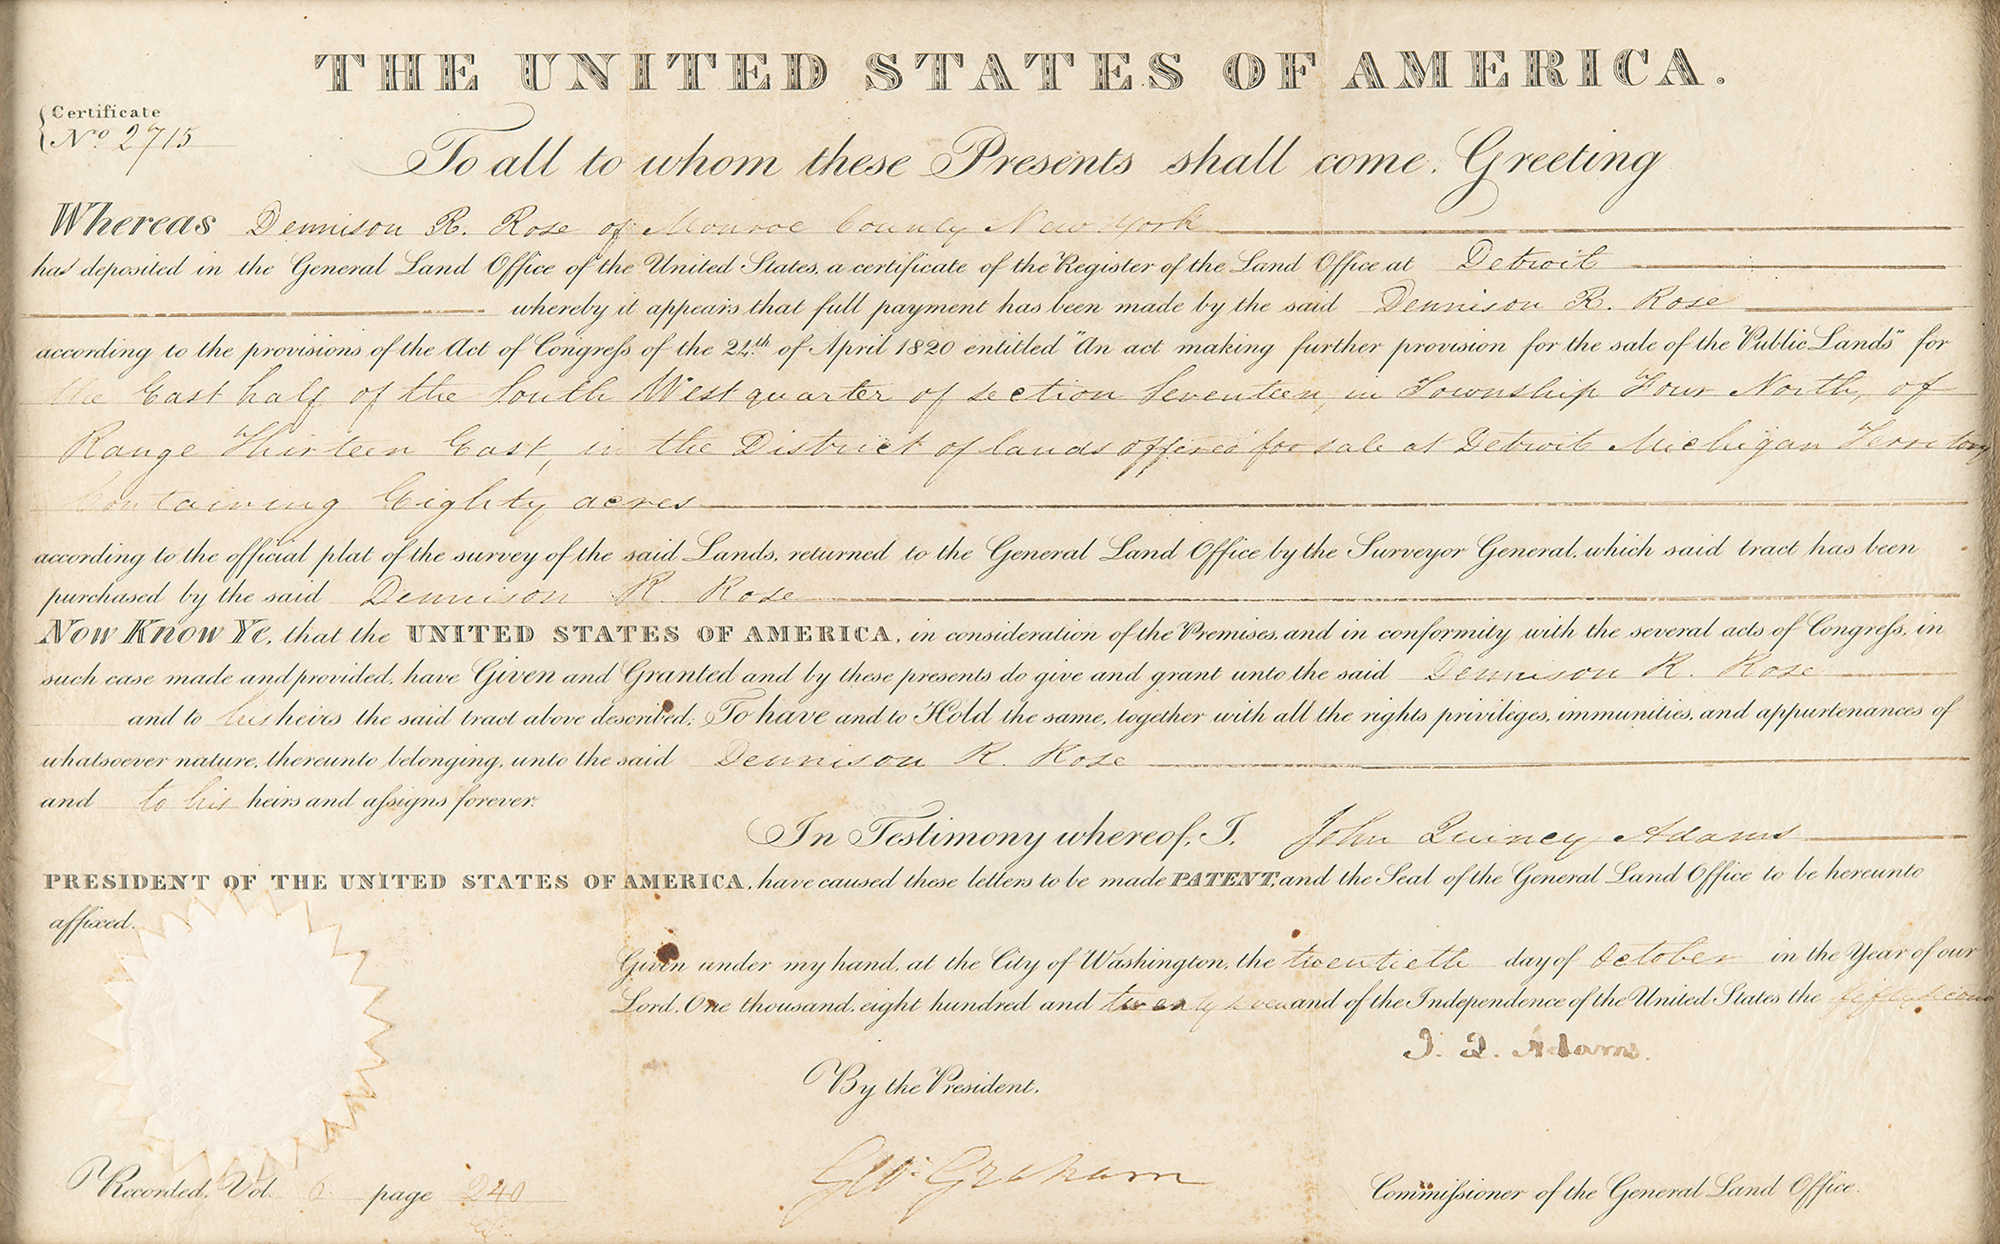 THE UNITED STATES OF AMERICA.
Certificate
No. 2715
To all to whom these Presents shall come, Greeting
Whereas Dennison R. Rose of Monroe County New York
has deposited in the General Land Office of the United States, a certificate of the Register of the Land Office at Detroit
whereby it appears that full payment has been made by the said Dennison R. Rose
according to the provisions of the Act of Congress of the 24th of April 1820 entitled "An act making further provision for the sale of the Public Lands" for
the East half of the South West quarter of section Seventeen, in Township Four North, of
Range Thirteen East, in the District of lands offered for sale at Detroit Michigan Territory
Containing Eighty acres
according to the official plat of the survey of the said Lands, returned to the General Land Office by the Surveyor General, which said tract has been
purchased by the said Dennison R. Rose
Now Know Ye, that the UNITED STATES OF AMERICA, in consideration of the Premises, and in conformity with the several acts of Congress, in
such case made and provided, have Given and Granted and by these presents do give and grant unto the said Dennison R. Rose
and to his heirs the said tract above described; To have and to Hold the same, together with all the rights privileges, immunities, and appurtenances of
whatsoever nature, thereunto belonging, unto the said Dennison R. Rose
and to his heirs and assigns forever.
In Testimony whereof, I, John Quincy Adams
PRESIDENT OF THE UNITED STATES OF AMERICA, have caused these letters to be made PATENT, and the Seal of the General Land Office to be hereunto
affixed.
Given under my hand, at the City of Washington, the twentieth day of October in the Year of our
Lord, One thousand, eight hundred and twenty seven and of the Independence of the United States the fifty second
J. Q. Adams.
By the President,
Geo. Graham
Commissioner of the General Land Office.
Recorded, Vol. 6 page 240